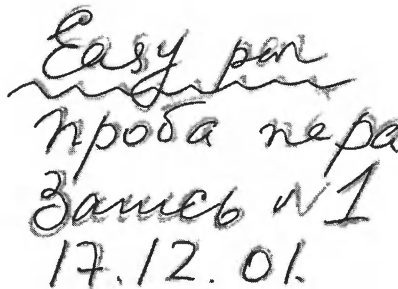 Easy pen
проба пера
Запись №1
17.12.01.